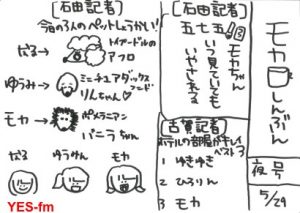 モカしんぶん
夜号
5/29
[石田記者]
五七五
モカちゃん
いつ見ていても
いやされる
[古賀記者]
ホテルの部屋がキレイ
ベスト3
1 ゆきゆき
2 ひろりん
3 モカ
[石田記者]
今日の3人のペットしょうかい!
だる→
トイプードルの
アフロ
ゆうみ→
ミニチュアダックス
フンド
りんちゃん♡
モカ→
ポメラニアン
バニラちゃん
だる
ゆうみん
モカ
YES-fm